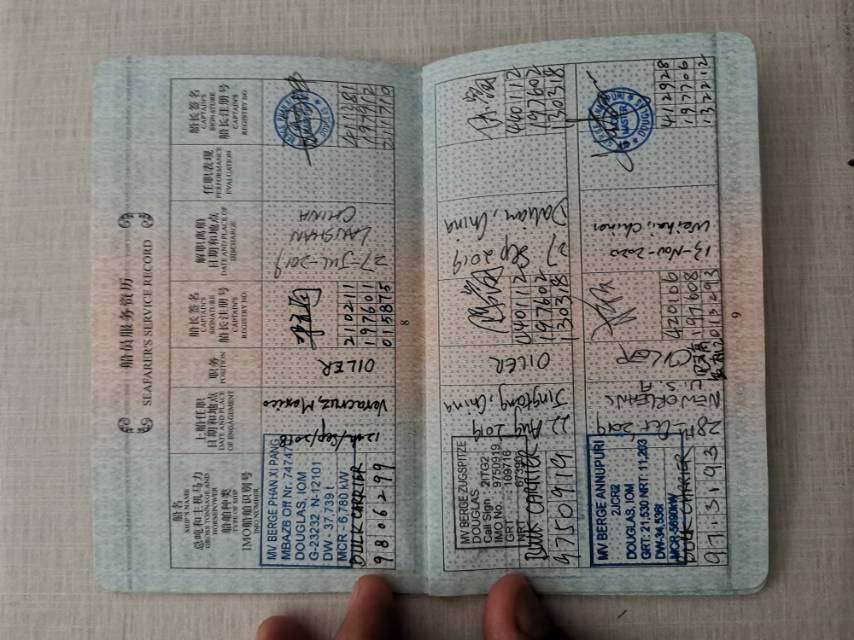 船员服务资历
SEAFARER'S SERVICE RECORD
船名
SHIP'S NAME
总吨和主机马力
GROSS TONNAGE AND
HORSEPOWER
船舶种类
TYPE OF SHIP
IMO船舶识别号
IMO NUMBER
上船任职
日期和地点
DATE AND PLACE
OF ENGAGEMENT
职务
POSITION
船长签名
CAPTAIN'S
SIGNATURE
船长注册号
CAPTAIN'S
REGISTRY NO
解职离船
日期和地点
DATE AND PLACE OF
DISCHARGE
任职表现
PERFORMANCE
EVALUATION
船长签名
CAPTAIN'S
SIGNATURE
船长注册号
CAPTAIN'S
REGISTRY NO
MV BERGE PHAN XI PANG
MBAZB Off Nr. 74747
DOUGLAS, IOM
G-23232 N-12101
DW - 37,739 t
MCR - 6,780 kW
BULK CARRIER
9806299
Veracruz, Mexico
OILER
210211
197601
015875
27-JUL-2019
LANSHAN
CHINA
8
MV BERGE ZUGSPITZE
DOUGLAS
Call Sign 2ITG2
IMO No. 9750919
GRT 109716
NRT
BULK CARRIER
9750919
22 Aug 2019
Jingtang, China
OILER
440112
197602
130318
27 Sep 2019
Dalian, China
440112
197602
130318
MV BERGE ANNUPURI
2JCR2
DOUGLAS, IOM
GRT: 21,530 NRT: 11,203
BULK CARRIER
9713193
NEW ORLEANS
OILER
420106
197608
013293
13-Nov-2020
Weihai, China
MASTER
DOUGLAS
412928
197706
132212
9